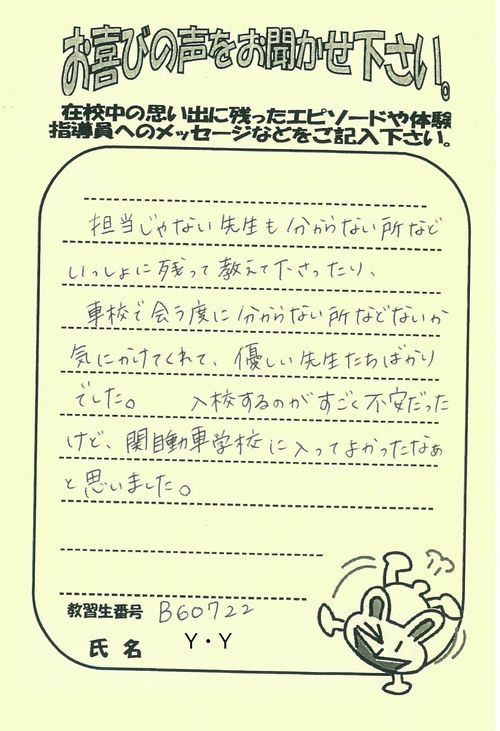 お喜びの声をお聞かせ下さい。
在校中の思い出に残ったエピソードや体験
指導員へのメッセージなどをご記入下さい。
担当じゃない先生も分からない所など
いっしょに残って教えて下さったり、
車校で会う度に分からない所などないか
気にかけてくれて、優しい先生たちばかり
でした。 入校するのがすごく不安だった
けど、関自動車学校に入ってよかったなぁ
と思いました。
教習生番号 B60722
氏名 Y・Y